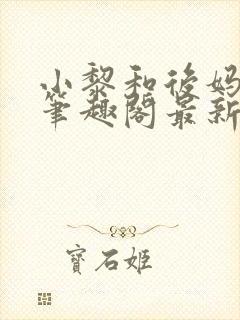 小黎和後妈
筆趣閣最新
寶石姬